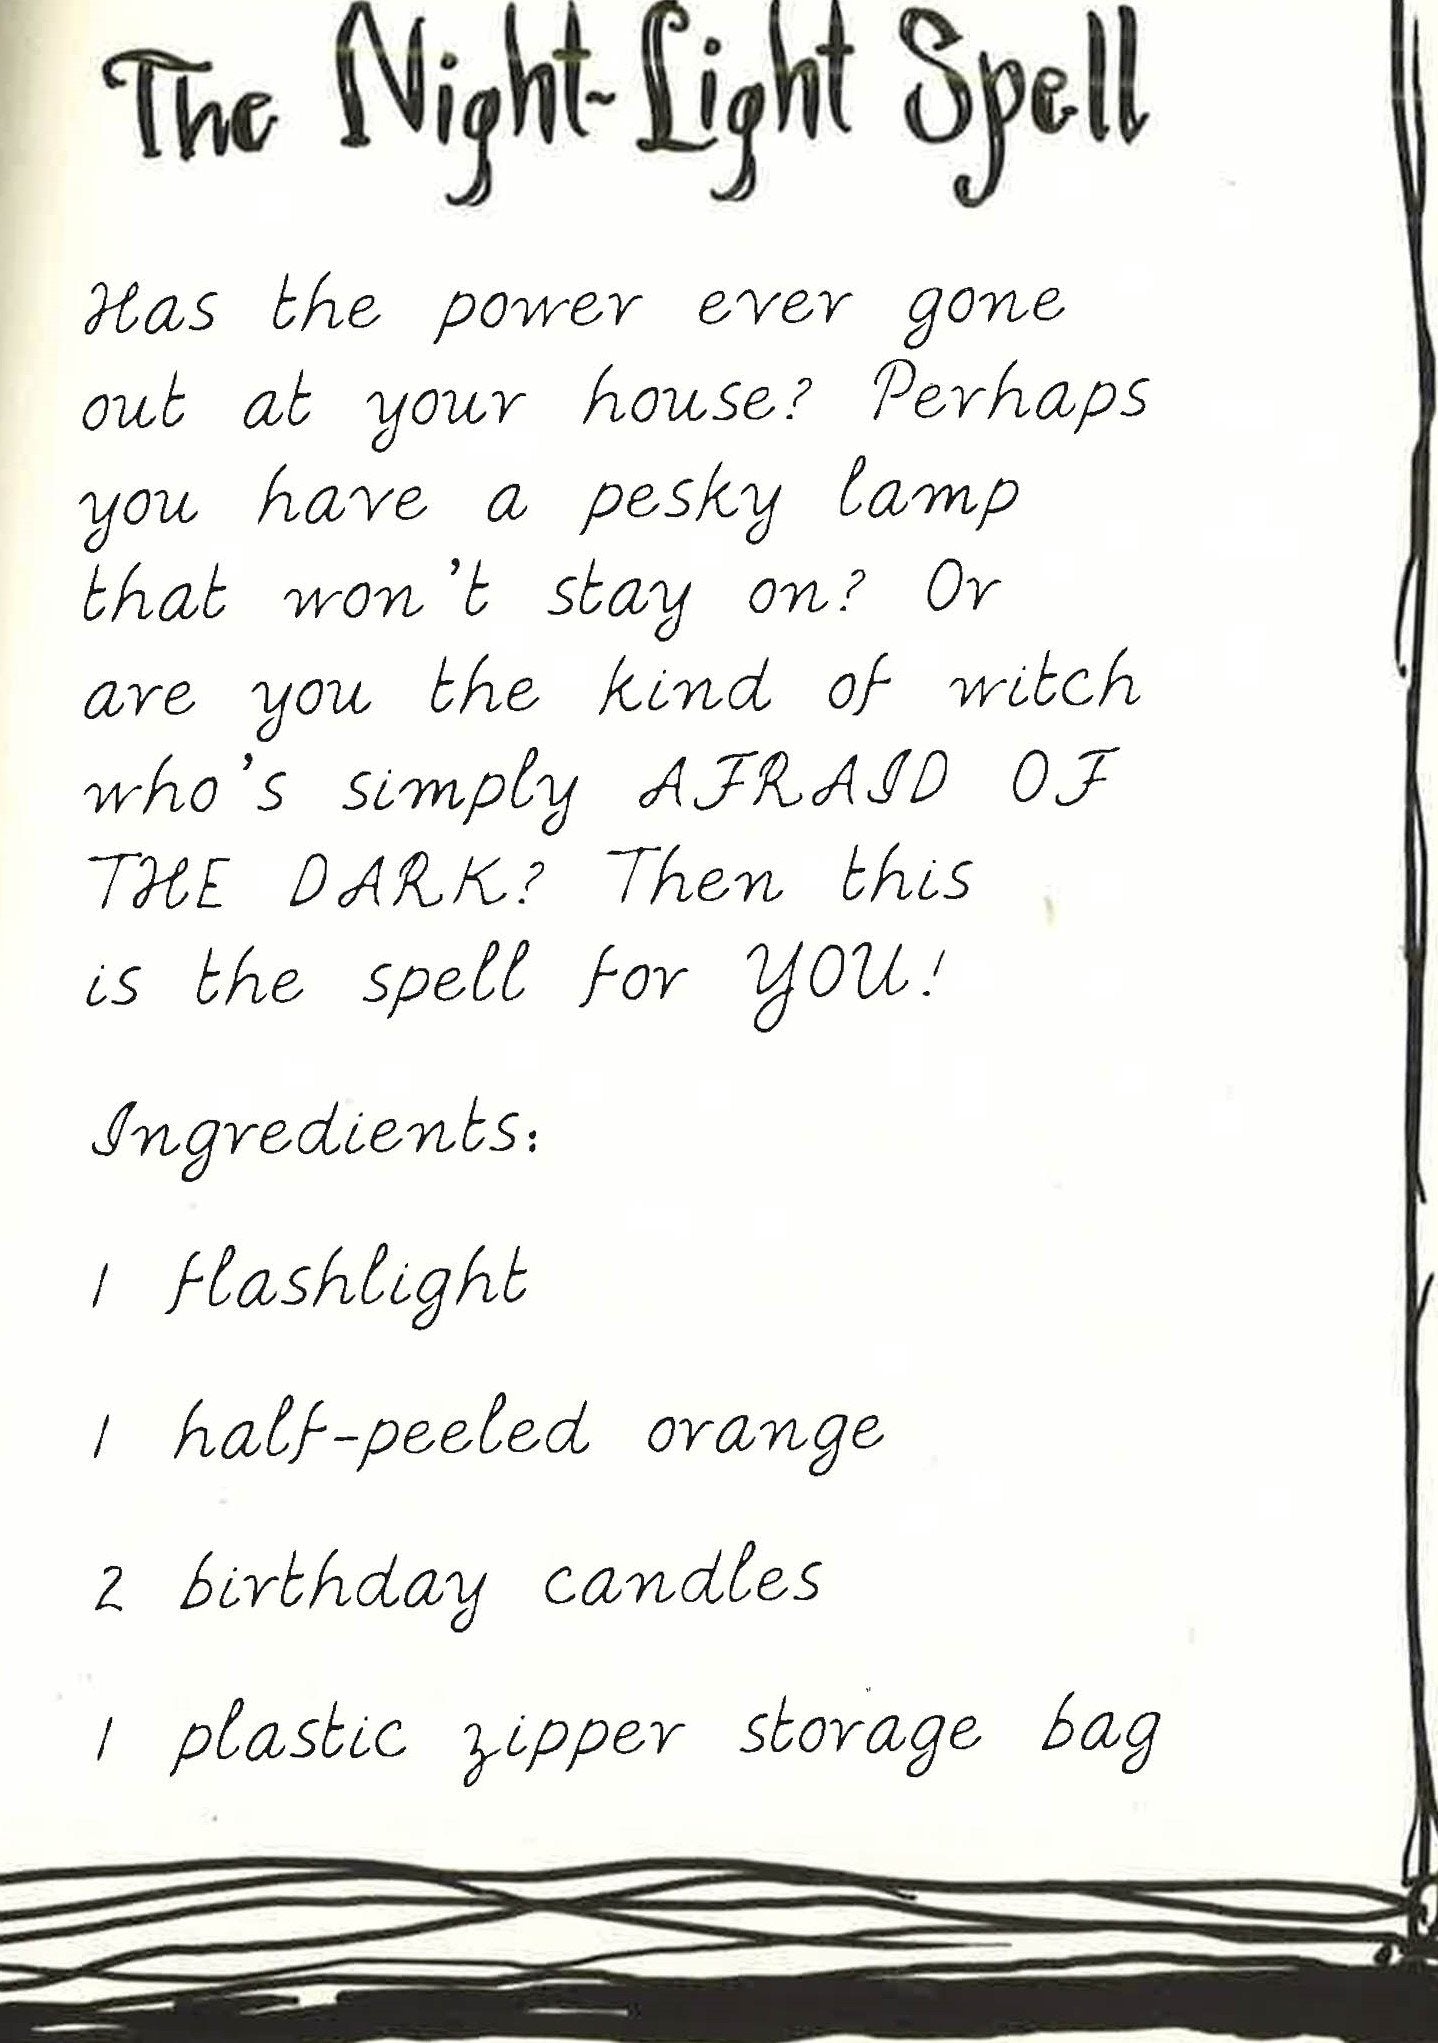 The Night-Light Spell
Has the power ever gone
out at your house? Perhaps
you have a pesky lamp
that won't stay on? Or
are you the kind of witch
who's simply AFRAID OF
THE DARK? Then this
is the spell for YOU!
Ingredients:
1 flashlight
1 half-peeled orange
2 birthday candles
1 plastic zipper storage bag